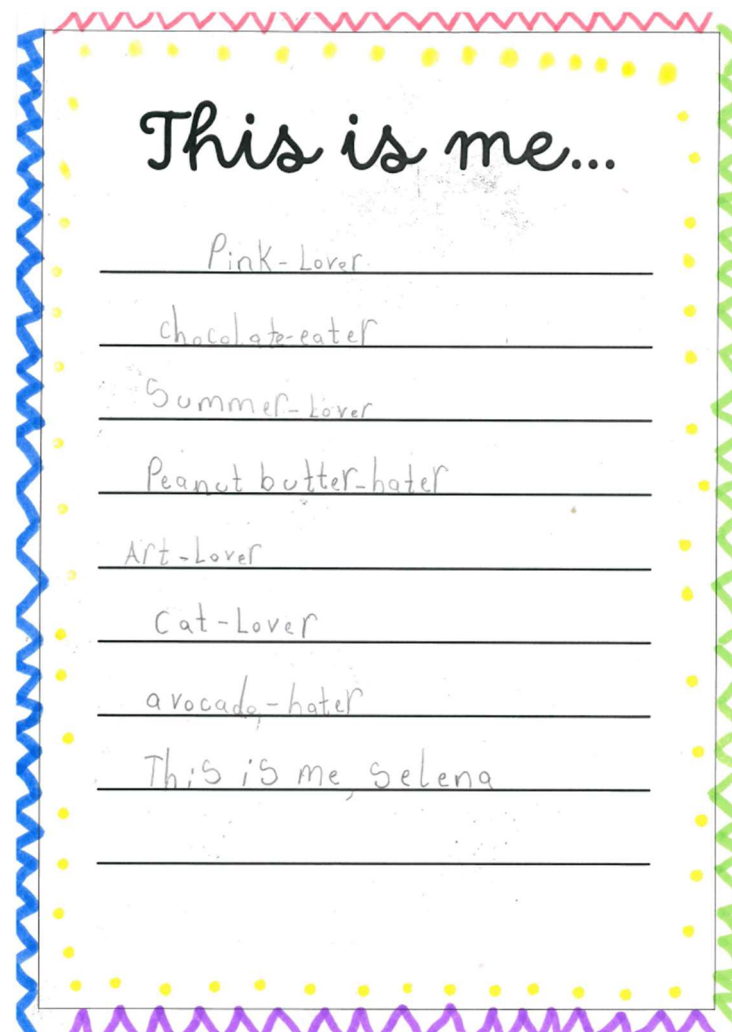 This is me...
Pink-Lover
chocolate-eater
Summer-Lover
Peanut butter-hater
Art-Lover
Cat-Lover
avocado-hater
This is me, Selena